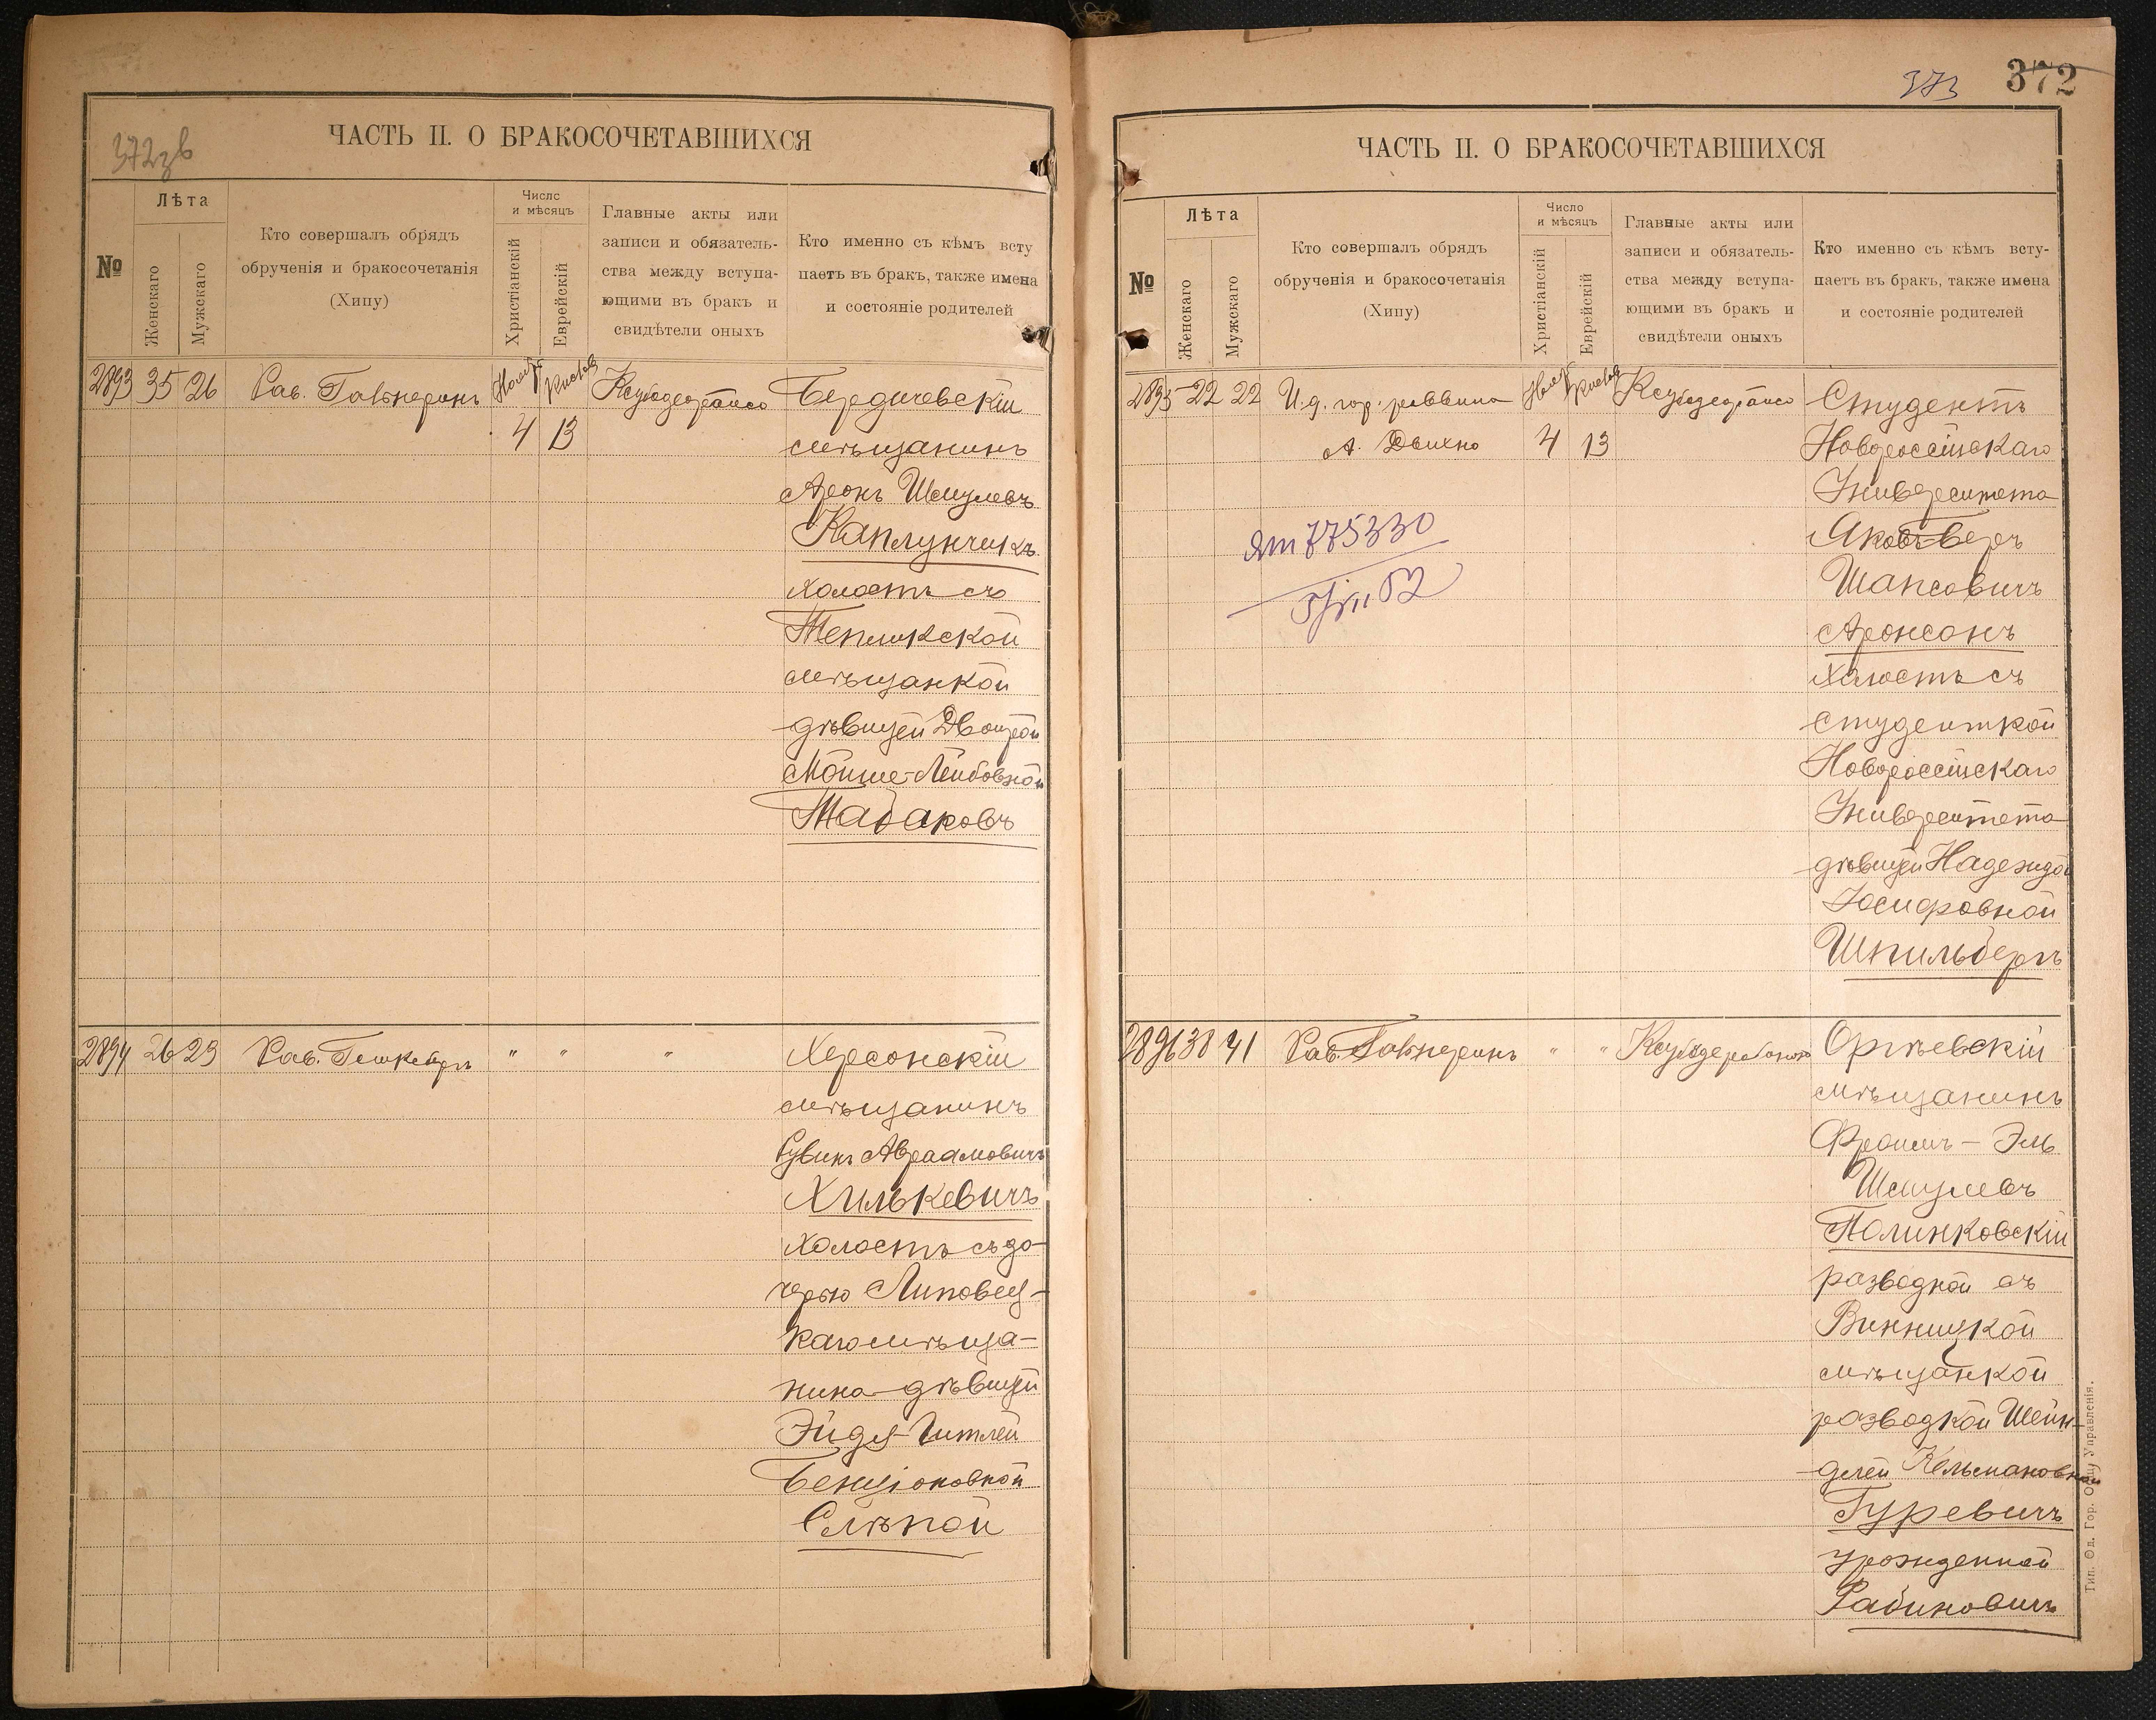 372зв
ЧАСТЬ II. О БРАКОСОЧЕТАВШИХСЯ
№
Лѣта
Женскаго
Мужскаго
Кто совершалъ обрядъ
обрученія и бракосочетанія
(Хипу)
Число
и мѣсяцъ
Христіанскій
Еврейскій
Главные акты или
записи и обязатель-
ства между вступа-
ющими въ бракъ и
свидѣтели оныхъ
Кто именно съ кѣмъ всту
паетъ въ бракъ, также имена
и состояніе родителей
2893 35 26 Рав. Гальперинъ Нояб. Кислев
4 13
Бердичевскій
мѣщанинъ
Аронъ Шмулевъ
Каплунчикъ
холостъ съ
Тепликской
мѣщанкой
дѣвицей Двойрой
Мойше-Лейбовной
Табаковъ
2894 26 29 Рав. " " "
Херсонскій
мѣщанинъ
Рувинъ Авраамовичъ
Хилькевичъ
холостъ съ до-
черью Липовец-
каго мѣща-
нина дѣвицей
Эйдя-Гитлей
Бенціоновной
Слѣпой
373 372
ЧАСТЬ II. О БРАКОСОЧЕТАВШИХСЯ
№
Лѣта
Женскаго
Мужскаго
Кто совершалъ обрядъ
обрученія и бракосочетанія
(Хипу)
Число
и мѣсяцъ
Христіанскій
Еврейскій
Главные акты или
записи и обязатель-
ства между вступа-
ющими въ бракъ и
свидѣтели оныхъ
Кто именно съ кѣмъ всту-
паетъ въ бракъ, также имена
и состояніе родителей
2895 22 22 И.д. гор. раввина Нояб. Кислев
А. Дыхно 4 13
775330
Студентъ
Новороссійскаго
Университета
Яковъ-Беръ
Шапсовичъ
Аронсонъ
холостъ съ
студенткой
Новороссійскаго
Университета
дѣвицей Надеждой
Іосифовной
Шпильбергъ
2896 38 41 Рав. Гальперинъ " "
Оргѣевскій
мѣщанинъ
Фроимъ-Эль
Шмулевъ
Полинковскій
разводной съ
Винницкой
мѣщанкой
разводкой Шейн-
делей Кельмановной
Гуревичъ
урожденной
Рабиновичъ
Тип. Од. Гор. Общ. Управленія.